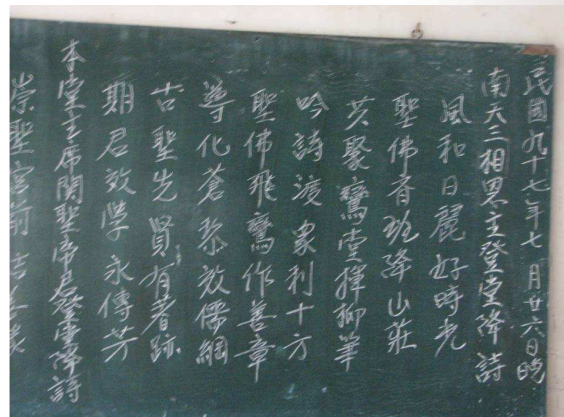 民國九十七年七月廿六日晚
南天三相恩主登堂降詩
風和日麗好時光
聖佛齊班降山莊
共聚鸞堂揮柳筆
吟詩渡眾利十方
聖佛飛鸞作善章
導化蒼黎效儒綱
古聖先賢有著跡
期君效學永傳芳
本堂主席關聖帝君登堂降詩
崇聖宮前